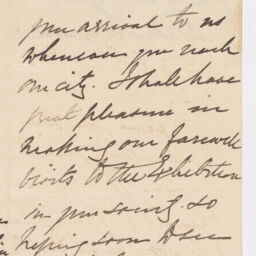 your arrival to us
whenever you reach
our city. I shall have
great pleasure in
making our farewell
visits to the Exhibition
in your society. so
hoping soon to see